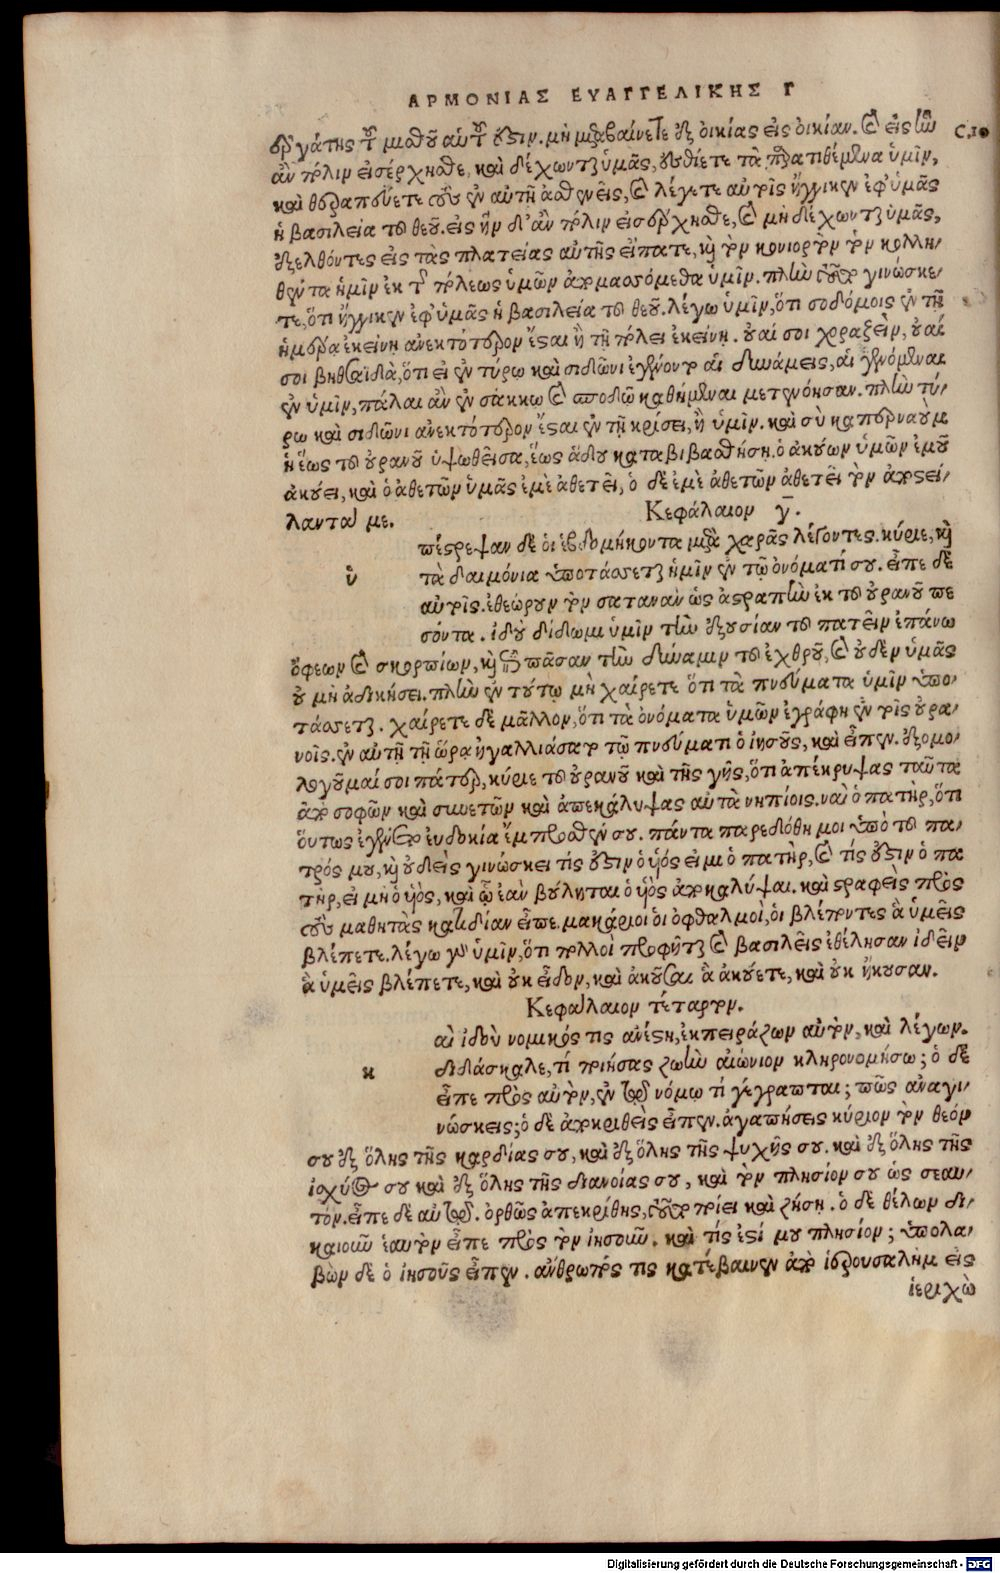 ΑΡΜΟΝΙΑΣ ΕΥΑΓΓΕΛΙΚΗΣ Γ
ἐργάτης τοῦ μισθοῦ αὐτοῦ ἐστιν. μὴ μεταβαίνετε ἐξ οἰκίας εἰς οἰκίαν. καὶ εἰς ἣν
C, 10
ἂν πόλιν εἰσέρχησθε, καὶ δέχωνται ὑμᾶς, ἐσθίετε τὰ παρατιθέμενα ὑμῖν,
καὶ θεραπεύετε τοὺς ἐν αὐτῇ ἀσθενεῖς, καὶ λέγετε αὐτοῖς ἤγγικεν ἐφ' ὑμᾶς
ἡ βασιλεία τοῦ θεοῦ. εἰς ἣν δ' ἂν πόλιν εἰσέρχησθε, καὶ μὴ δέχωνται ὑμᾶς,
ἐξελθόντες εἰς τὰς πλατείας αὐτῆς εἴπατε, καὶ τὸν κονιορτὸν τὸν κολλη/
θέντα ἡμῖν ἐκ τῆς πόλεως ὑμῶν ἀπομασσόμεθα ὑμῖν. πλὴν τοῦτο γινώσκε/
τε, ὅτι ἤγγικεν ἐφ' ὑμᾶς ἡ βασιλεία τοῦ θεοῦ. λέγω ὑμῖν, ὅτι σοδόμοις ἐν τῇ
ἡμέρα ἐκείνη ἀνεκτότερον ἔσται ἢ τῇ πόλει ἐκείνη. οὐαί σοι χοραζεὶν, οὐαί
σοι βηθσαϊδὰ, ὅτι εἰ ἐν τύρω καὶ σιδῶνι ἐγένοντο αἱ δυνάμεις, αἱ γενόμεναι
ἐν ὑμῖν, πάλαι ἂν ἐν σάκκω καὶ σποδῷ καθήμεναι μετενόησαν. πλὴν τύ/
ρω καὶ σιδῶνι ἀνεκτότερον ἔσται ἐν τῇ κρίσει, ἢ ὑμῖν. καὶ σὺ καπερναοὺμ
ἡ ἕως τοῦ οὐρανοῦ ὑψωθεῖσα, ἕως ἅδου καταβιβασθήση. ὁ ἀκούων ὑμῶν ἐμοῦ
ἀκούει, καὶ ὁ ἀθετῶν ὑμᾶς ἐμὲ ἀθετεῖ, ὁ δὲ ἐμὲ ἀθετῶν ἀθετεῖ τὸν ἀποστεί/
λαντά με.
Κεφάλαιον γ̄.
ὑ
πέστρεψαν δὲ οἱ ἑβδομήκοντα μετὰ χαρᾶς λέγοντες. κύριε, καὶ
τὰ δαιμόνια ὑποτάσσεται ἡμῖν ἐν τῷ ὀνόματί σου. εἶπε δὲ
αὐτοῖς. ἐθεώρουν τὸν σατανὰν ὡς ἀστραπὴν ἐκ τοῦ οὐρανοῦ πε
σόντα. ἰδοὺ δίδωμι ὑμῖν τὴν ἐξουσίαν τοῦ πατεῖν ἐπάνω
ὄφεων καὶ σκορπίων, καὶ ἐπὶ πᾶσαν τὴν δύναμιν τοῦ ἐχθροῦ, καὶ οὐδὲν ὑμᾶς
οὐ μὴ ἀδικήσει. πλὴν ἐν τούτῳ μὴ χαίρετε ὅτι τὰ πνεύματα ὑμῖν ὑπο/
τάσσεται. χαίρετε δὲ μᾶλλον, ὅτι τὰ ὀνόματα ὑμῶν ἐγράφη ἐν τοῖς οὐρα/
νοῖς. ἐν αὐτῇ τῇ ὥρᾳ ἠγαλλιάσατο τῷ πνεύματι ὁ ἰησοῦς, καὶ εἶπεν. ἐξομο/
λογοῦμαί σοι πάτερ, κύριε τοῦ οὐρανοῦ καὶ τῆς γῆς, ὅτι ἀπέκρυψας ταῦτα
ἀπὸ σοφῶν καὶ συνετῶν καὶ ἀπεκάλυψας αὐτὰ νηπίοις. ναὶ ὁ πατὴρ, ὅτι
οὕτως ἐγένετο εὐδοκία ἔμπροσθέν σου. πάντα παρεδόθη μοι ὑπὸ τοῦ πα/
τρός μου, καὶ οὐδεὶς γινώσκει τίς ἐστιν ὁ ὑὸς εἰ μὴ ὁ πατὴρ, καὶ τίς ἐστιν ὁ πα
τὴρ, εἰ μὴ ὁ ὑὸς, καὶ ᾧ ἐὰν βούληται ὁ ὑὸς ἀποκαλύψαι. καὶ στραφεὶς πρὸς
τοὺς μαθητὰς κατιδίαν εἶπε. μακάριοι οἱ ὀφθαλμοὶ, οἱ βλέποντες ἃ ὑμεῖς
βλέπετε. λέγω γὰρ ὑμῖν, ὅτι πολλοὶ προφῆται καὶ βασιλεῖς ἐθέλησαν ἰδεῖν
ἃ ὑμεῖς βλέπετε, καὶ οὐκ εἶδον, καὶ ἀκοῦσαι ἃ ἀκούετε, καὶ οὐκ ἤκουσαν.
Κεφάλαιον τέταρτον.
κ
αὶ ἰδοὺ νομικός τις ἀνέστη, ἐκπειράζων αὐτὸν, καὶ λέγων.
διδάσκαλε, τί ποιήσας ζωὴν αἰώνιον κληρονομήσω; ὁ δὲ
εἶπε πρὸς αὐτὸν, ἐν τῷ νόμῳ τί γέγραπται; πῶς ἀναγι/
νώσκεις; ὁ δὲ ἀποκριθεὶς εἶπεν. ἀγαπήσεις κύριον τὸν θεόν
σου ἐξ ὅλης τῆς καρδίας σου, καὶ ἐξ ὅλης τῆς ψυχῆς σου. καὶ ἐξ ὅλης τῆς
ἰσχύος σου καὶ ἐξ ὅλης τῆς διανοίας σου, καὶ τὸν πλησίον σου ὡς σεαυ/
τόν. εἶπε δὲ αὐτῷ. ὀρθῶς ἀπεκρίθης, τοῦτο ποίει καὶ ζήση. ὁ δὲ θέλων δι/
καιοῦν ἑαυτὸν εἶπε πρὸς τὸν ἰησοῦν. καὶ τίς ἐστί μου πλησίον; ὑπολα/
βὼν δὲ ὁ ἰησοῦς εἶπεν. ἄνθρωπός τις κατέβαινεν ἀπὸ ἱερουσαλὴμ εἰς
ἱεριχὼ
Digitalisierung gefördert durch die Deutsche Forschungsgemeinschaft - DFG